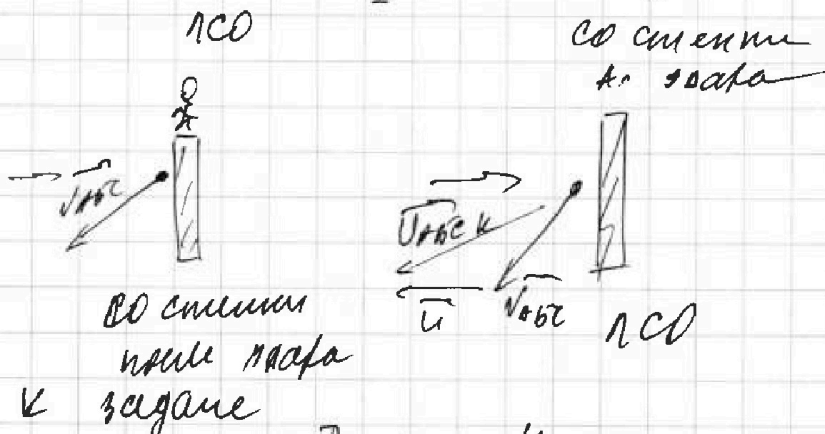 ЛСО
СО стенки
п. удара
V абс
U абс к
ū
V абс
ЛСО
СО стенки
после удара
К задаче